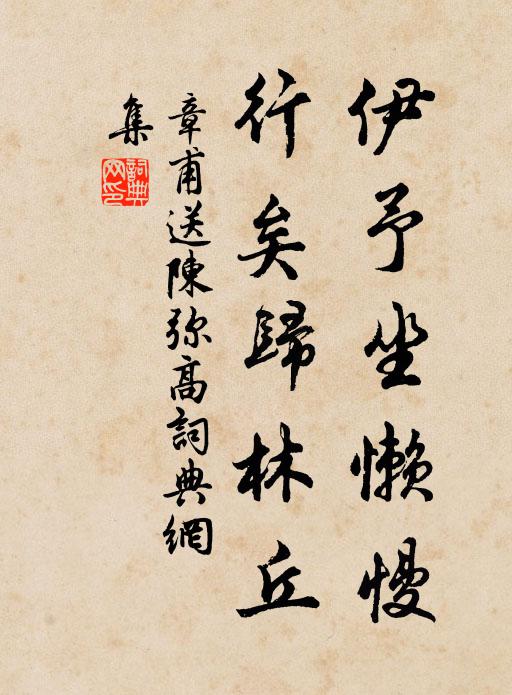 伊予坐懶慢
行矣歸林丘
章甫送陳弥高詞典網
集
詞典网印